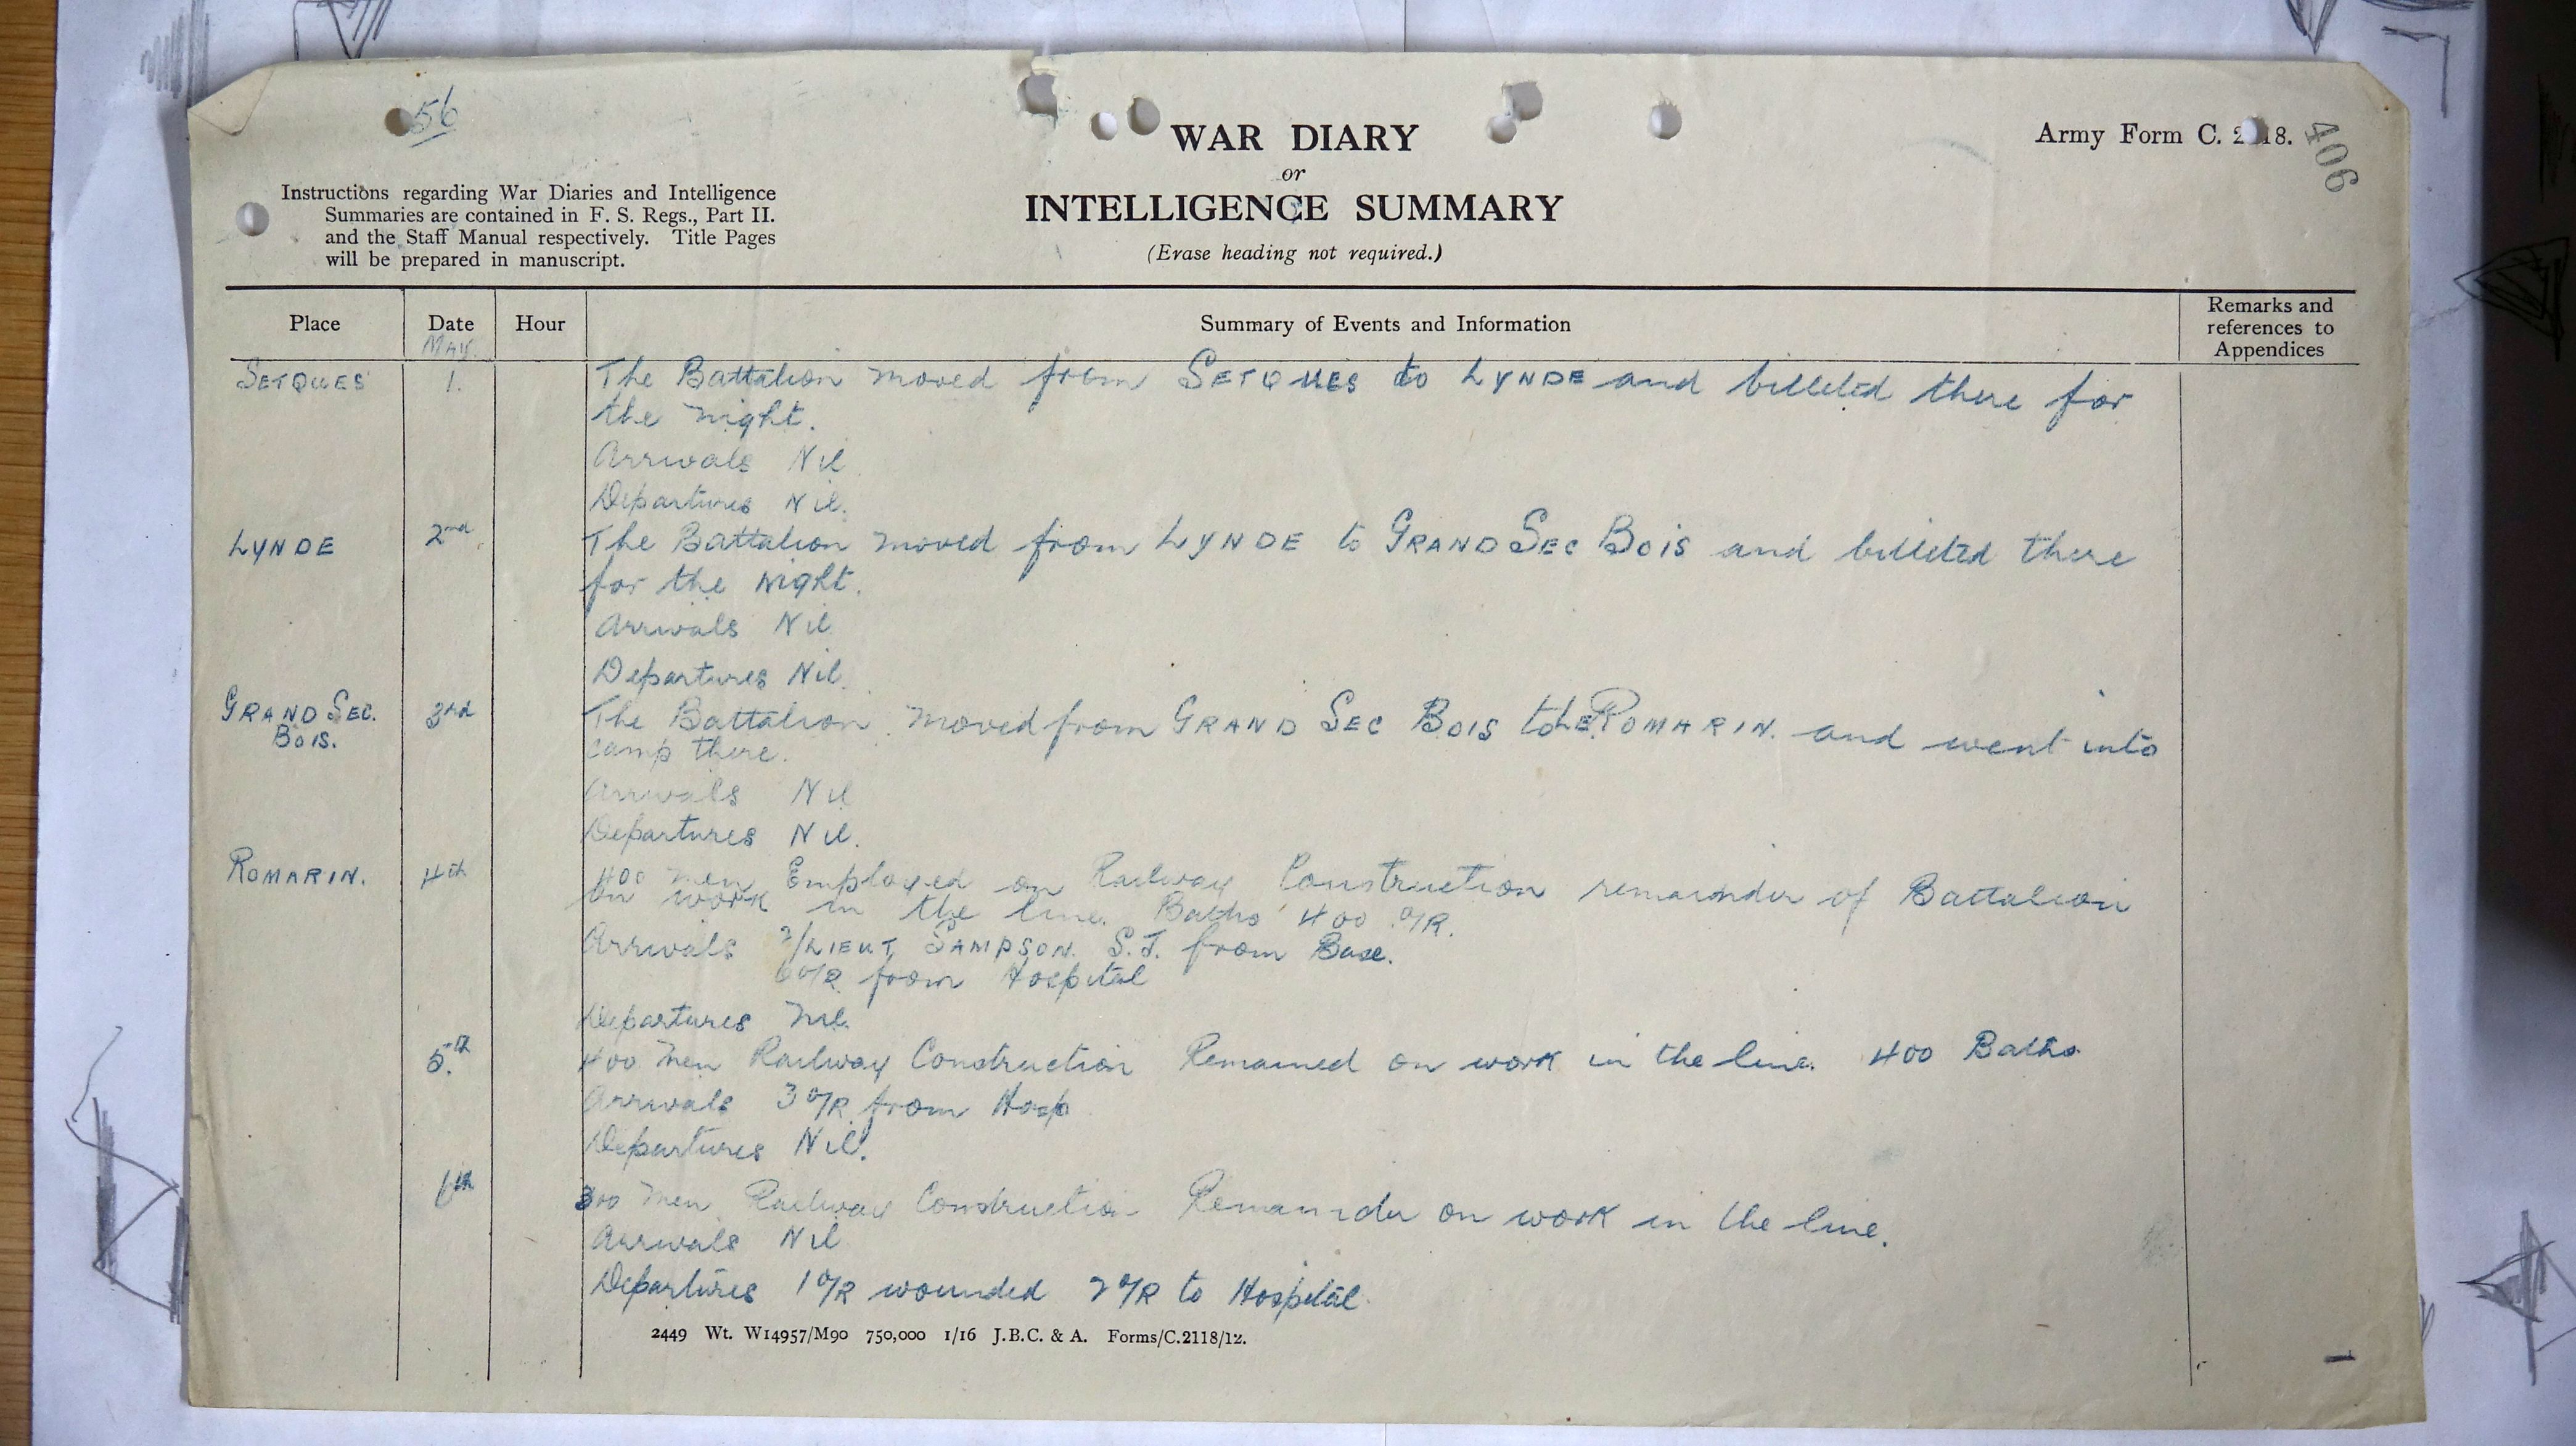 56
WAR DIARY
or
INTELLIGENCE SUMMARY
(Erase heading not required.)
Army Form C. 2118.
406
Instructions regarding War Diaries and Intelligence
Summaries are contained in F. S. Regs., Part II.
and the Staff Manual respectively. Title Pages
will be prepared in manuscript.
Place Date Hour Summary of Events and Information Remarks and references to Appendices
May.
SETQUES 1. The Battalion moved from SETQUES to LYNDE and billeted there for
the night.
Arrivals Nil
Departures Nil.
LYNDE 2nd. The Battalion moved from LYNDE to GRAND SEC BOIS and billeted there
for the night.
Arrivals Nil
Departures Nil.
GRAND SEC. BOIS. 3rd The Battalion moved from GRAND SEC BOIS to LE ROMARIN. and went into
camp there.
Arrivals Nil
Departures Nil.
ROMARIN. 4th 400 men Employed on Railway Construction remainder of Battalion
on work in the line. Baths 400 O/R.
Arrivals 2/LIEUT SAMPSON. S.J. from Base.
6 O/R from Hospital
Departures Nil.
5th. 400 Men Railway Construction Remained on work in the line. 400 Baths.
Arrivals 3 O/R from Hosp
Departures Nil.
6th 300 Men Railway Construction Remainder on work in the line.
Arrivals Nil
Departures 1 O/R wounded 2 O/R to Hospital.
2449 Wt. W14957/M90 750,000 1/16 J.B.C. & A. Forms/C.2118/12.